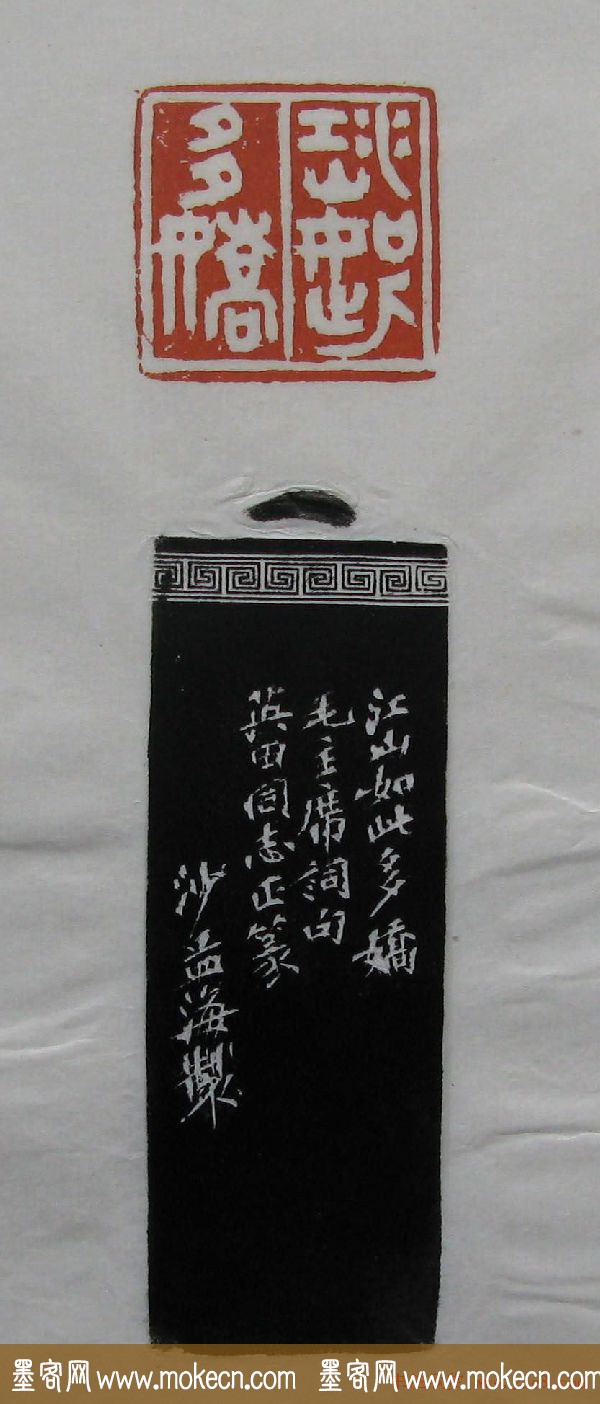 江山如此
多嬌
江山如此多嬌
毛主席詞句
英田同志正篆
沙孟海製
墨客网 www.mokecn.com 墨客网 www.mokecn.com